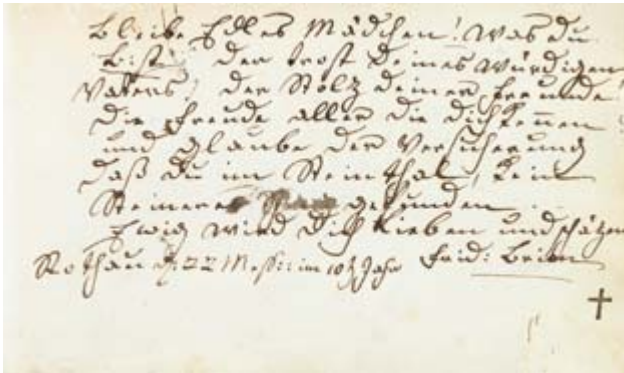 Bleibe Edles Mädchen! was du
bist, der trost deines würdigen
Vaters, der Stolz deiner freunde
die freude aller die dich kennen
und glaube der Versicherung
daß du im Steinthal, kein
Steinernes gefunden
Ewig wird dich lieben und schätzen
Rothau d: 22 Mess: im 10t Jahr frid: Brion